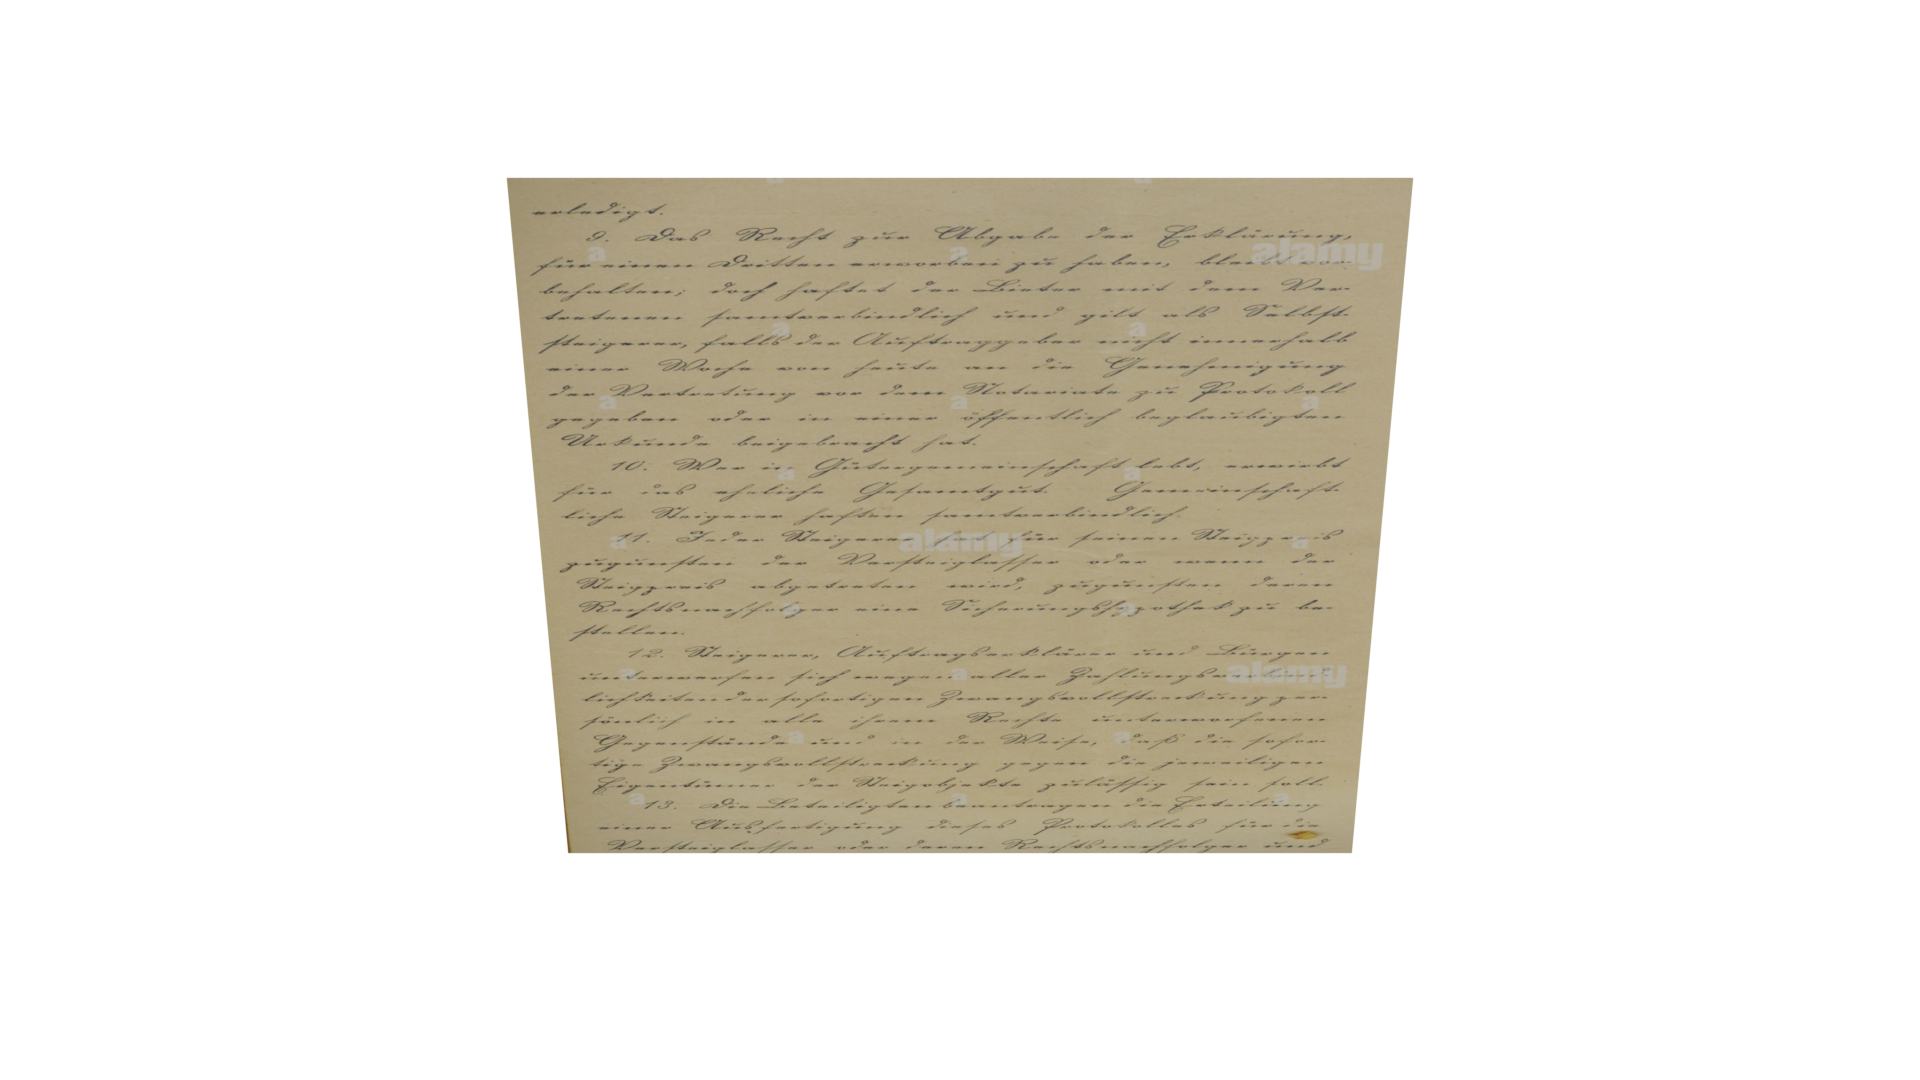 erledigt.
9. Das Recht zur Abgabe der Erklärung,
für einen Dritten erworben zu haben, bleibt vor-
behalten; doch haftet der Bieter mit dem Ver-
tretenen samtverbindlich und gilt als Selbst-
steigerer, falls der Auftraggeber nicht innerhalb
einer Woche von heute an die Genehmigung
der Vertretung vor dem Notariate zu Protokoll
gegeben oder in einer öffentlich beglaubigten
Urkunde beigebracht hat.
10. Wer in Gütergemeinschaft lebt, erwirbt
für das eheliche Gesamtgut. Gemeinschaft-
liche Steigerer haften samtverbindlich.
11. Jeder Steigerer hat für seinen Steigpreis
zugunsten der Versteiglasser oder wenn der
Steigpreis abgetreten wird, zugunsten deren
Rechtsnachfolger eine Sicherungshypothek zu be-
stellen.
12. Steigerer, Auftragserklärer und Bürgen
unterwerfen sich wegen aller
lichkeiten der sofortigen Zwangsvollstreckung per-
sönlich in alle ihrem Rechte unterworfenen
Gegenstände und in der Weise, daß die sofor-
tige Zwangsvollstreckung gegen die jeweiligen
Eigentümer der Steigobjekte zulässig sein soll.
13. Die Beteiligten beantragen die Erteilung
einer Ausfertigung dieses Protokolles für die
Versteiglasser oder deren Rechtsnachfolger und